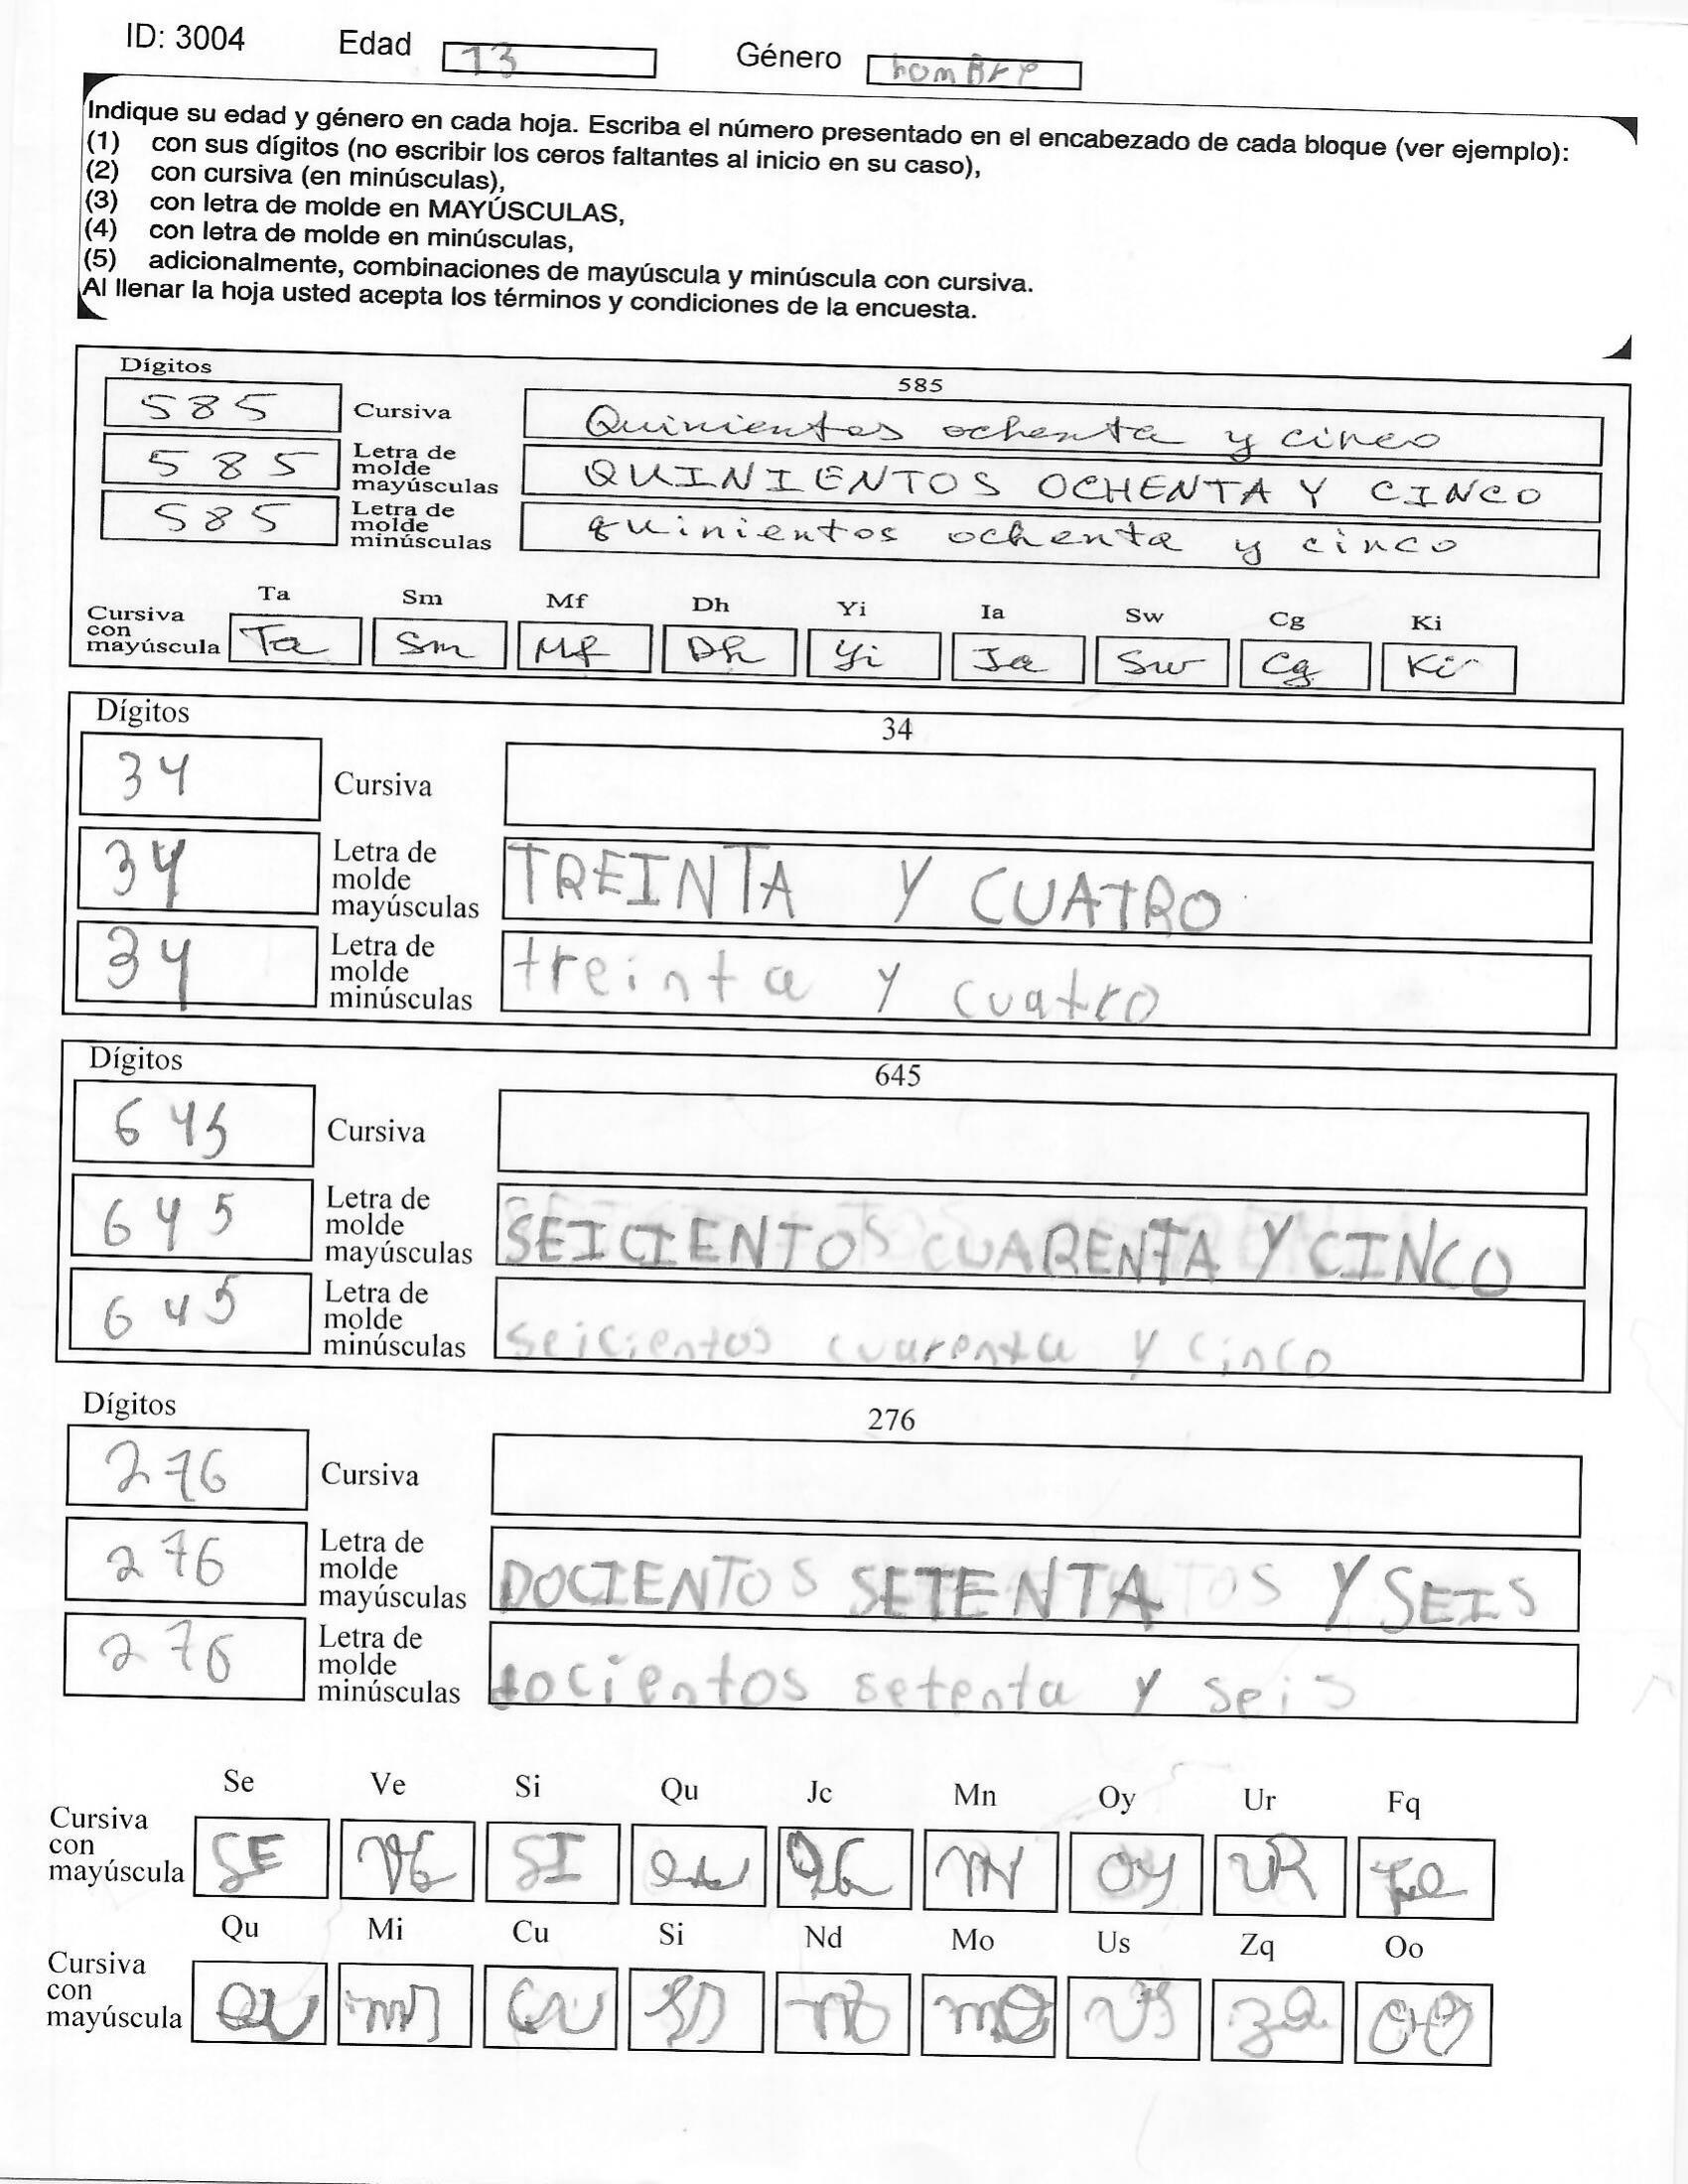 ID: 3004 Edad 13 Género homBre
Indique su edad y género en cada hoja. Escriba el número presentado en el encabezado de cada bloque (ver ejemplo):
(1) con sus dígitos (no escribir los ceros faltantes al inicio en su caso),
(2) con cursiva (en minúsculas),
(3) con letra de molde en MAYÚSCULAS,
(4) con letra de molde en minúsculas,
(5) adicionalmente, combinaciones de mayúscula y minúscula con cursiva.
Al llenar la hoja usted acepta los términos y condiciones de la encuesta.
Dígitos 585
585 Cursiva Quinientos ochenta y cinco
585 Letra de molde mayúsculas QUINIENTOS OCHENTA Y CINCO
585 Letra de molde minúsculas quinientos ochenta y cinco
Ta Sm Mf Dh Yi Ia Sw Cg Ki
Cursiva con mayúscula Ta Sm Mf Dh Yi Ia Sw Cg Ki
Dígitos 34
34 Cursiva
34 Letra de molde mayúsculas TREINTA Y CUATRO
34 Letra de molde minúsculas treinta y cuatro
Dígitos 645
645 Cursiva
645 Letra de molde mayúsculas SEICIENTOS CUARENTA Y CINCO
645 Letra de molde minúsculas seicientos cuarenta y cinco
Dígitos 276
276 Cursiva
276 Letra de molde mayúsculas DOCIENTOS SETENTA Y SEIS
276 Letra de molde minúsculas docientos setenta y seis
Se Ve Si Qu Jc Mn Oy Ur Fq
Cursiva con mayúscula SE VE SI QU MN OY UR
Qu Mi Cu Si Nd Mo Us Zq Oo
Cursiva con mayúscula QU MI CU SI ND MO US ZQ OO